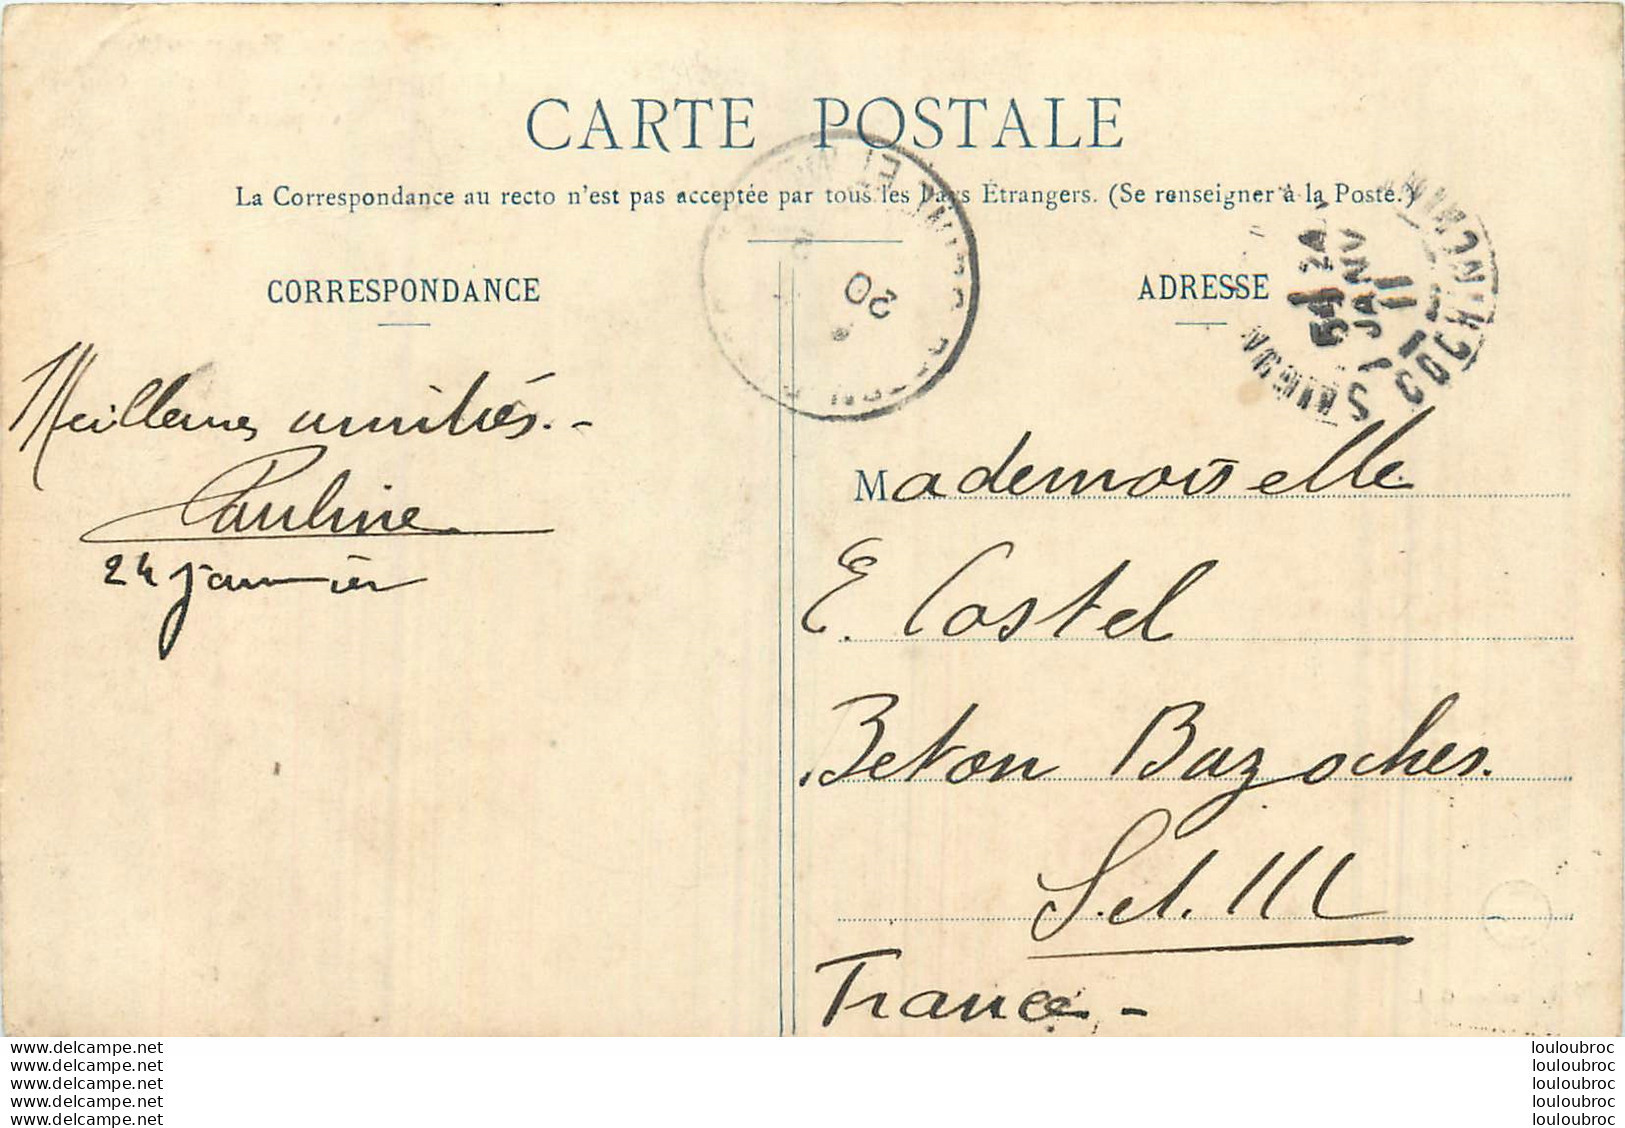 CARTE POSTALE
La Correspondance au recto n'est pas acceptée par tous les Pays Étrangers. (Se renseigner à la Poste.)
CORRESPONDANCE
ADRESSE
Meilleures amitiés.-
Pauline
24 janvier
Mademoiselle
E. Costel
Beton Bazoches.
S. et. M
France -
SAIGON
COCHINCHINE
JANV
11
20
www.delcampe.net
www.delcampe.net
www.delcampe.net
www.delcampe.net
www.delcampe.net
louloubroc
louloubroc
louloubroc
louloubroc
louloubroc